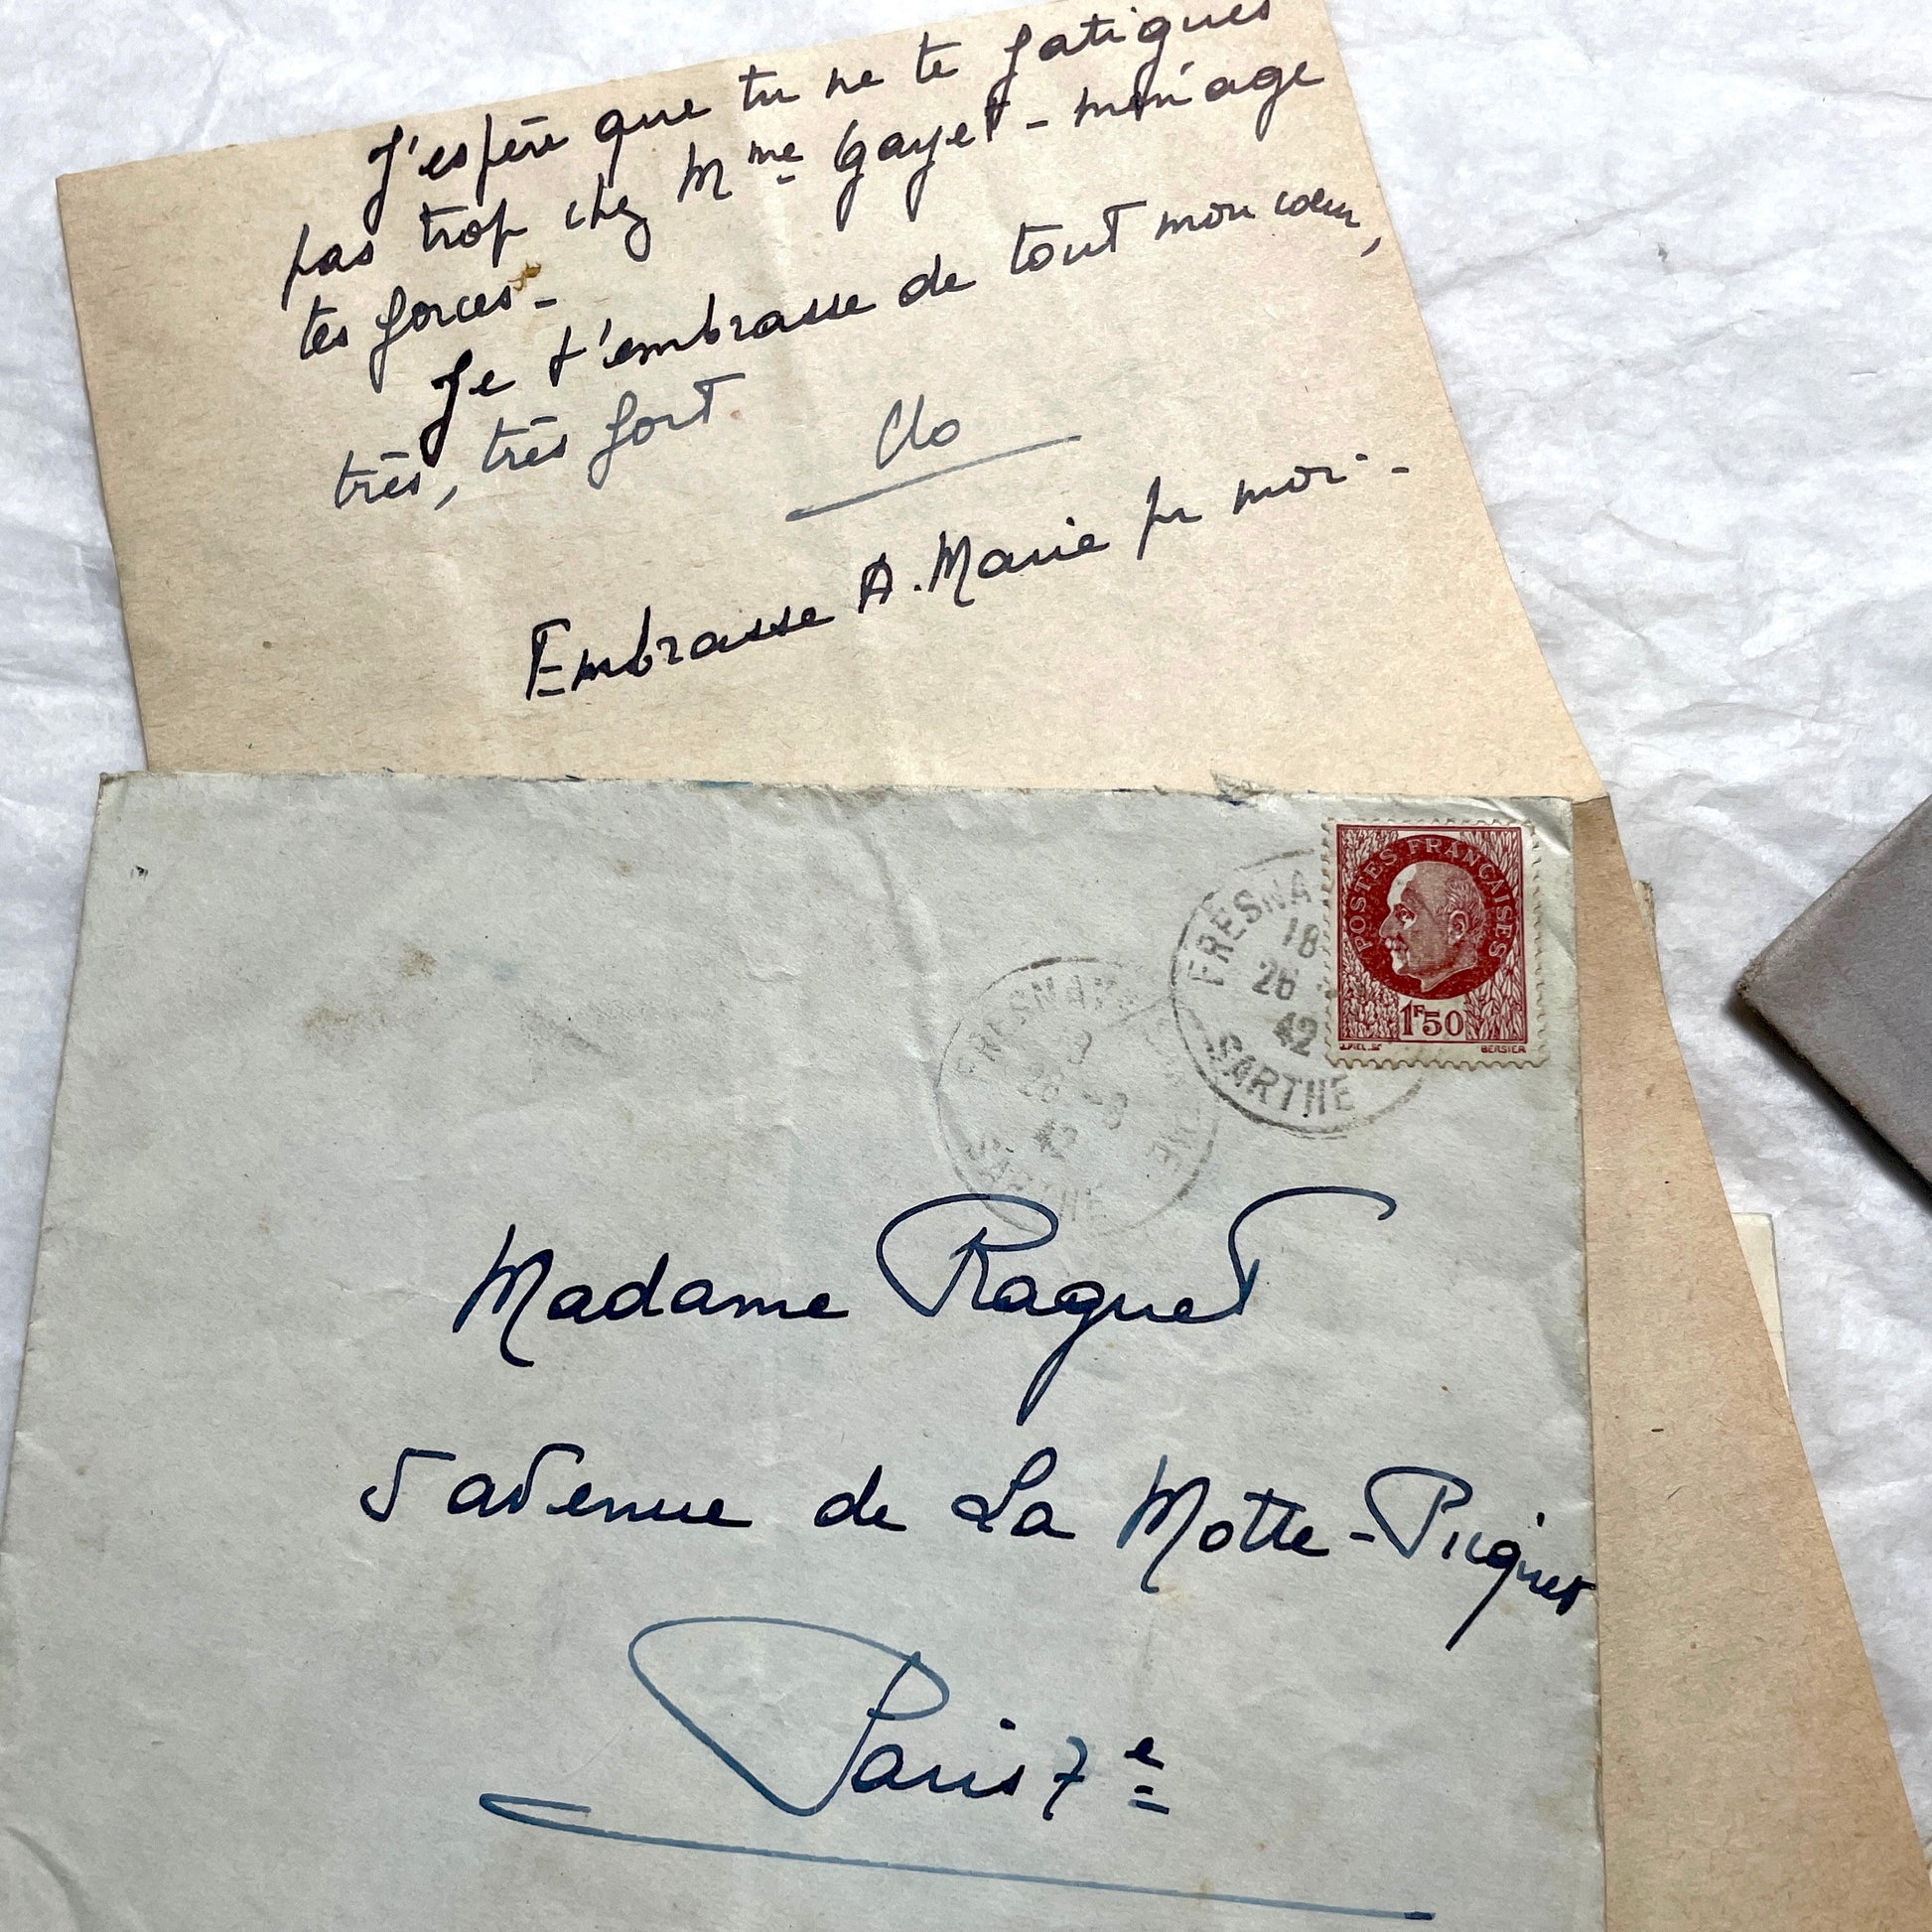 J'espère que tu ne te fatigues
pas trop chez Mme Gayet - ménage
tes forces -
Je t'embrasse de tout mon cœur,
très, très fort
Clo
Embrasse A. Marie pr moi -
POSTES FRANÇAISES
1F50
BERSIER
FRESNA
18
26
42
SARTHE
FRESNAY
26 -8
42
Madame Raguet
5 avenue de La Motte-Picquet
Paris 7e